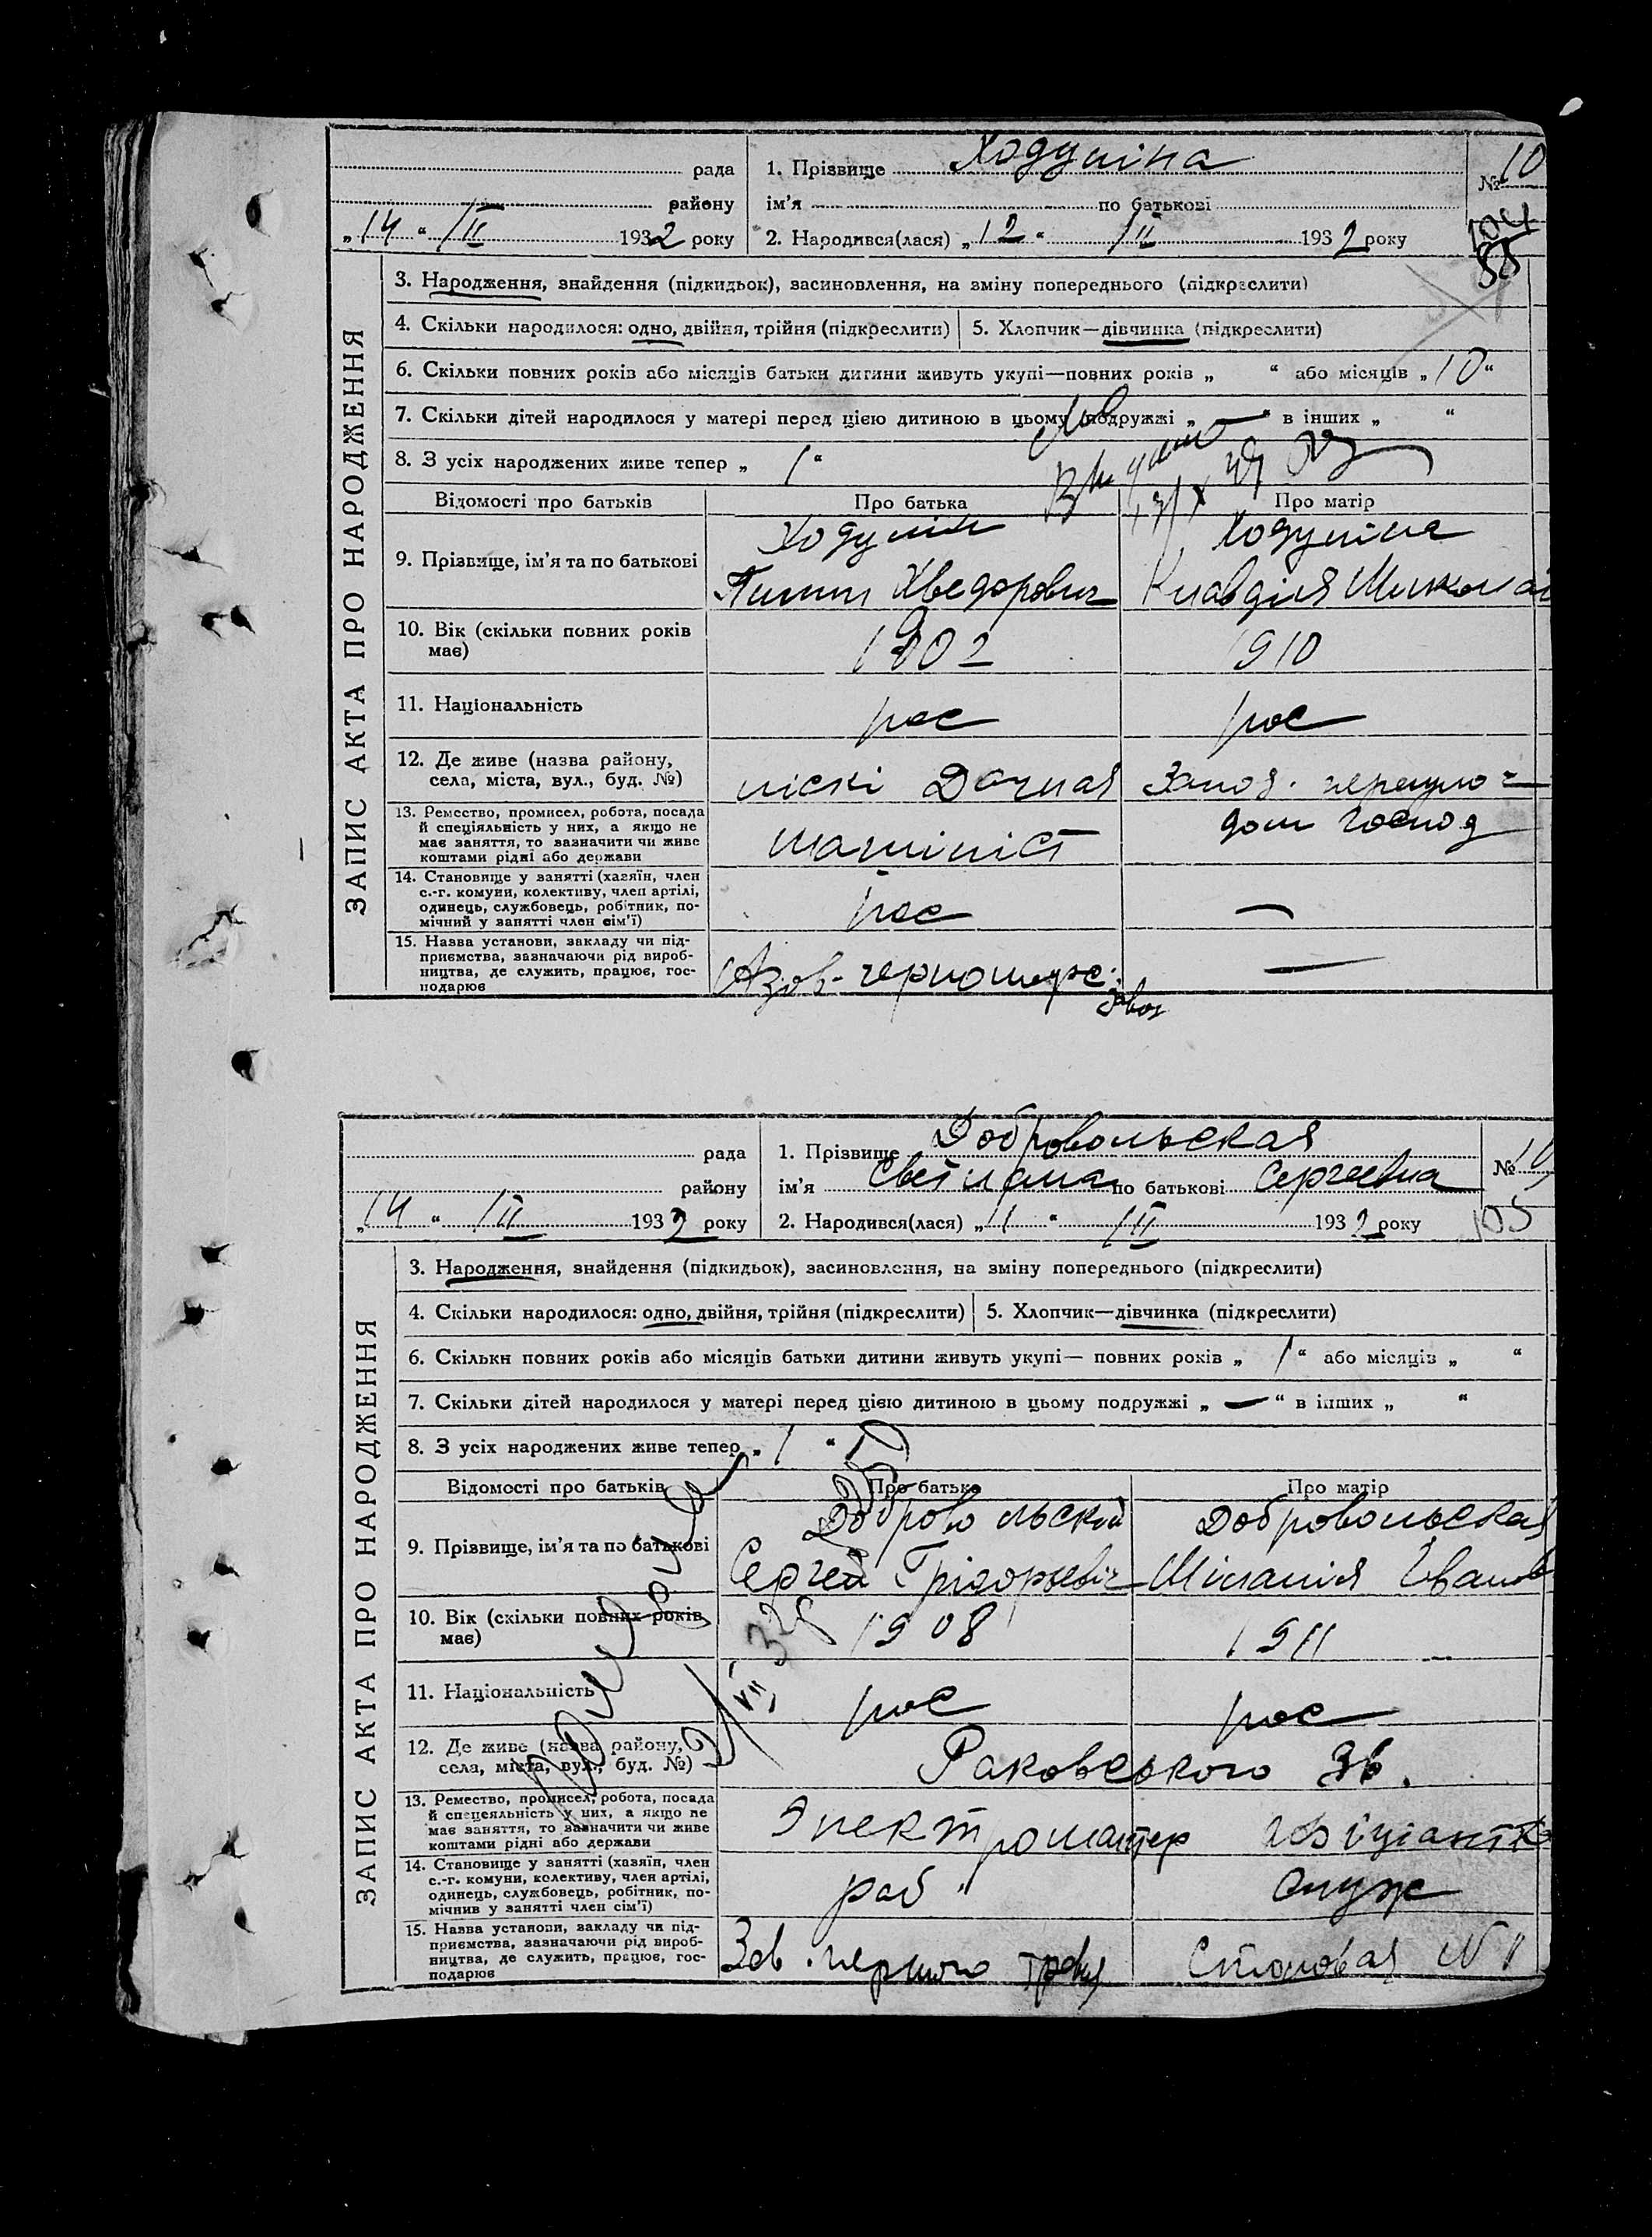 рада
1. Прізвище Ходуліна
№ 10
району
ім'я по батькові
„14“ III 1932 року
2. Народився(лася) „12“ III 1932 року
104
55
ЗАПИС АКТА ПРО НАРОДЖЕННЯ
3. Народження, знайдення (підкидьок), засиновлення, на зміну попереднього (підкреслити)
4. Скільки народилося: одно, двійня, трійня (підкреслити)
5. Хлопчик—дівчинка (підкреслити)
6. Скільки повних років або місяців батьки дитини живуть укупі—повних років „ “ або місяців „10“
7. Скільки дітей народилося у матері перед цією дитиною в цьому подружжі „—“ в інших „ “
8. З усіх народжених живе тепер „1“
Відомості про батьків
Про батька
Про матір
9. Прізвище, ім'я та по батькові
Ходулін
Хведорович
Ходуліна
Клавдия Миколаї
10. Вік (скільки повних років має)
1902
1910
11. Національність
рос
рос
12. Де живе (назва району, села, міста, вул., буд. №)
піскі Дачная
13. Ремество, промисел, робота, посада й спеціяльність у них, а якщо не має заняття, то зазначити чи живе коштами рідні або держави
машиніст
дом господ
14. Становище у занятті (хазяїн, член с.-г. комуни, колективу, член артілі, одинець, службовець, робітник, помічний у занятті член сім'ї)
—
15. Назва установи, закладу чи підприємства, зазначаючи рід виробництва, де служить, працює, господарює
Азов-черноморс.
завод
—
рада
1. Прізвище Добровольская
№ 10
району
ім'я Светлана по батькові Сергеевна
„14“ III 1932 року
2. Народився(лася) „11“ III 1932 року
105
ЗАПИС АКТА ПРО НАРОДЖЕННЯ
3. Народження, знайдення (підкидьок), засиновлення, на зміну попереднього (підкреслити)
4. Скільки народилося: одно, двійня, трійня (підкреслити)
5. Хлопчик—дівчинка (підкреслити)
6. Скільки повних років або місяців батьки дитини живуть укупі— повних років „1“ або місяців „ “
7. Скільки дітей народилося у матері перед цією дитиною в цьому подружжі „—“ в інших „ “
8. З усіх народжених живе тепер „1“
Відомості про батьків
Про батька
Про матір
9. Прізвище, ім'я та по батькові
Добровольский
Сергей Грігорьевіч
Добровольская
Міланія Іванов
10. Вік (скільки повних років має)
1908
1911
11. Національність
рос
рос
12. Де живе (назва району, села, міста, вул., буд. №)
Раковського 36.
13. Ремество, промисел, робота, посада й спецеяльність у них, а якщо не має заняття, то зазначити чи живе коштами рідні або держави
Электромантер
14. Становище у занятті (хазяїн, член с.-г. комуни, колективу, член артілі, одинець, службовець, робітник, помічнив у занятті член сім'ї)
раб
служ
15. Назва установи, закладу чи підприємства, зазначаючи рід виробництва, де служить, працює, господарює
Зав. першого травня
Столовая №1